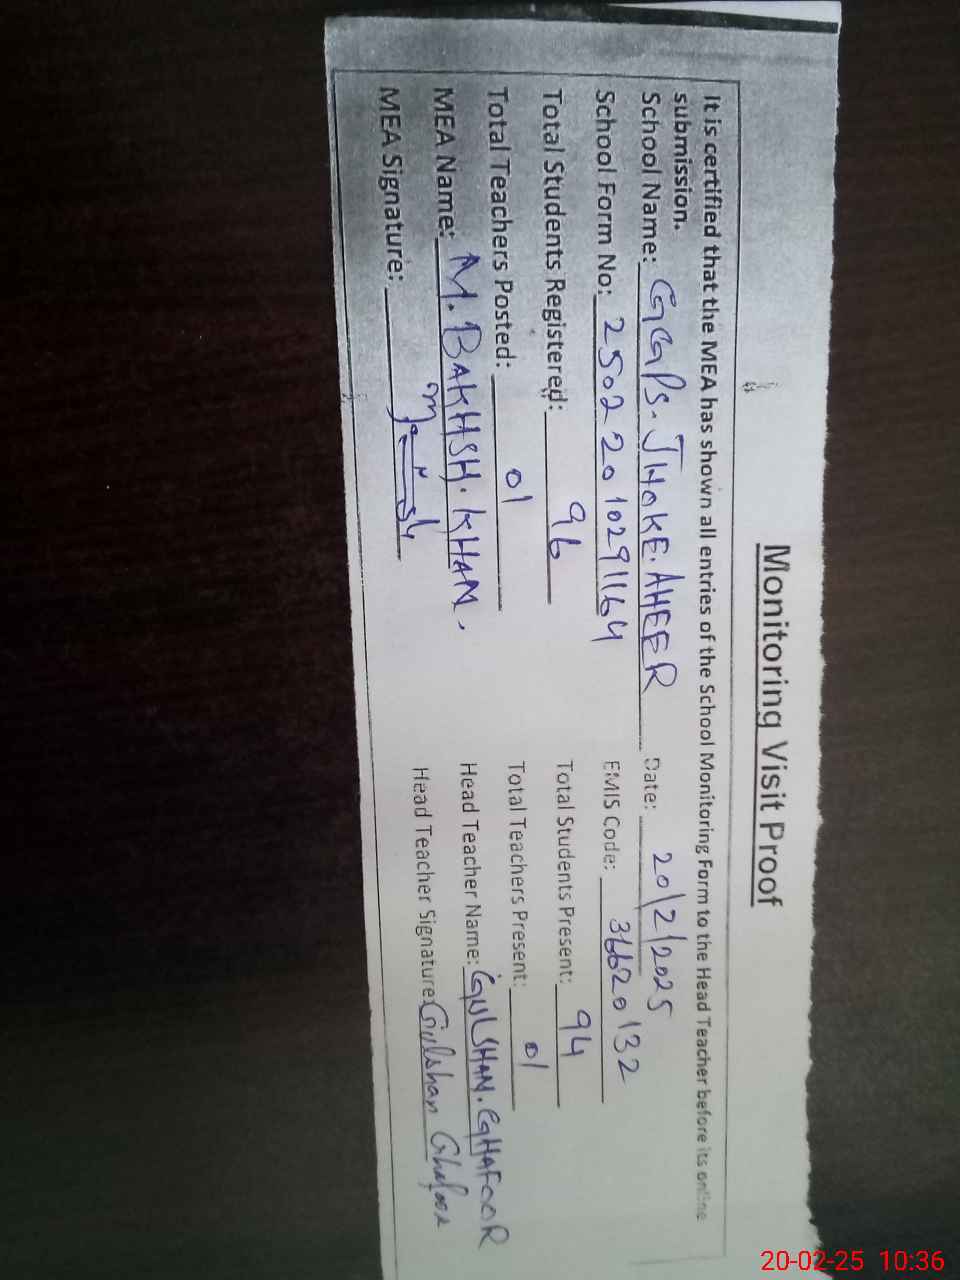 Monitoring Visit Proof
It is certified that the MEA has shown all entries of the School Monitoring Form to the Head Teacher before its online
submission.
School Name: GGPS. JHOKE. AHEER Date: 20/2/2025
School Form No: 2502 20 10291164 EMIS Code: 36620132
Total Students Registered: 96 Total Students Present: 94
Total Teachers Posted: 01 Total Teachers Present: 01
MEA Name: M. BAKHSH. KHAN. Head Teacher Name: GULSHAN. GHAFOOR
MEA Signature: Head Teacher Signature: Gulshan Ghafoor
20-02-25 10:36